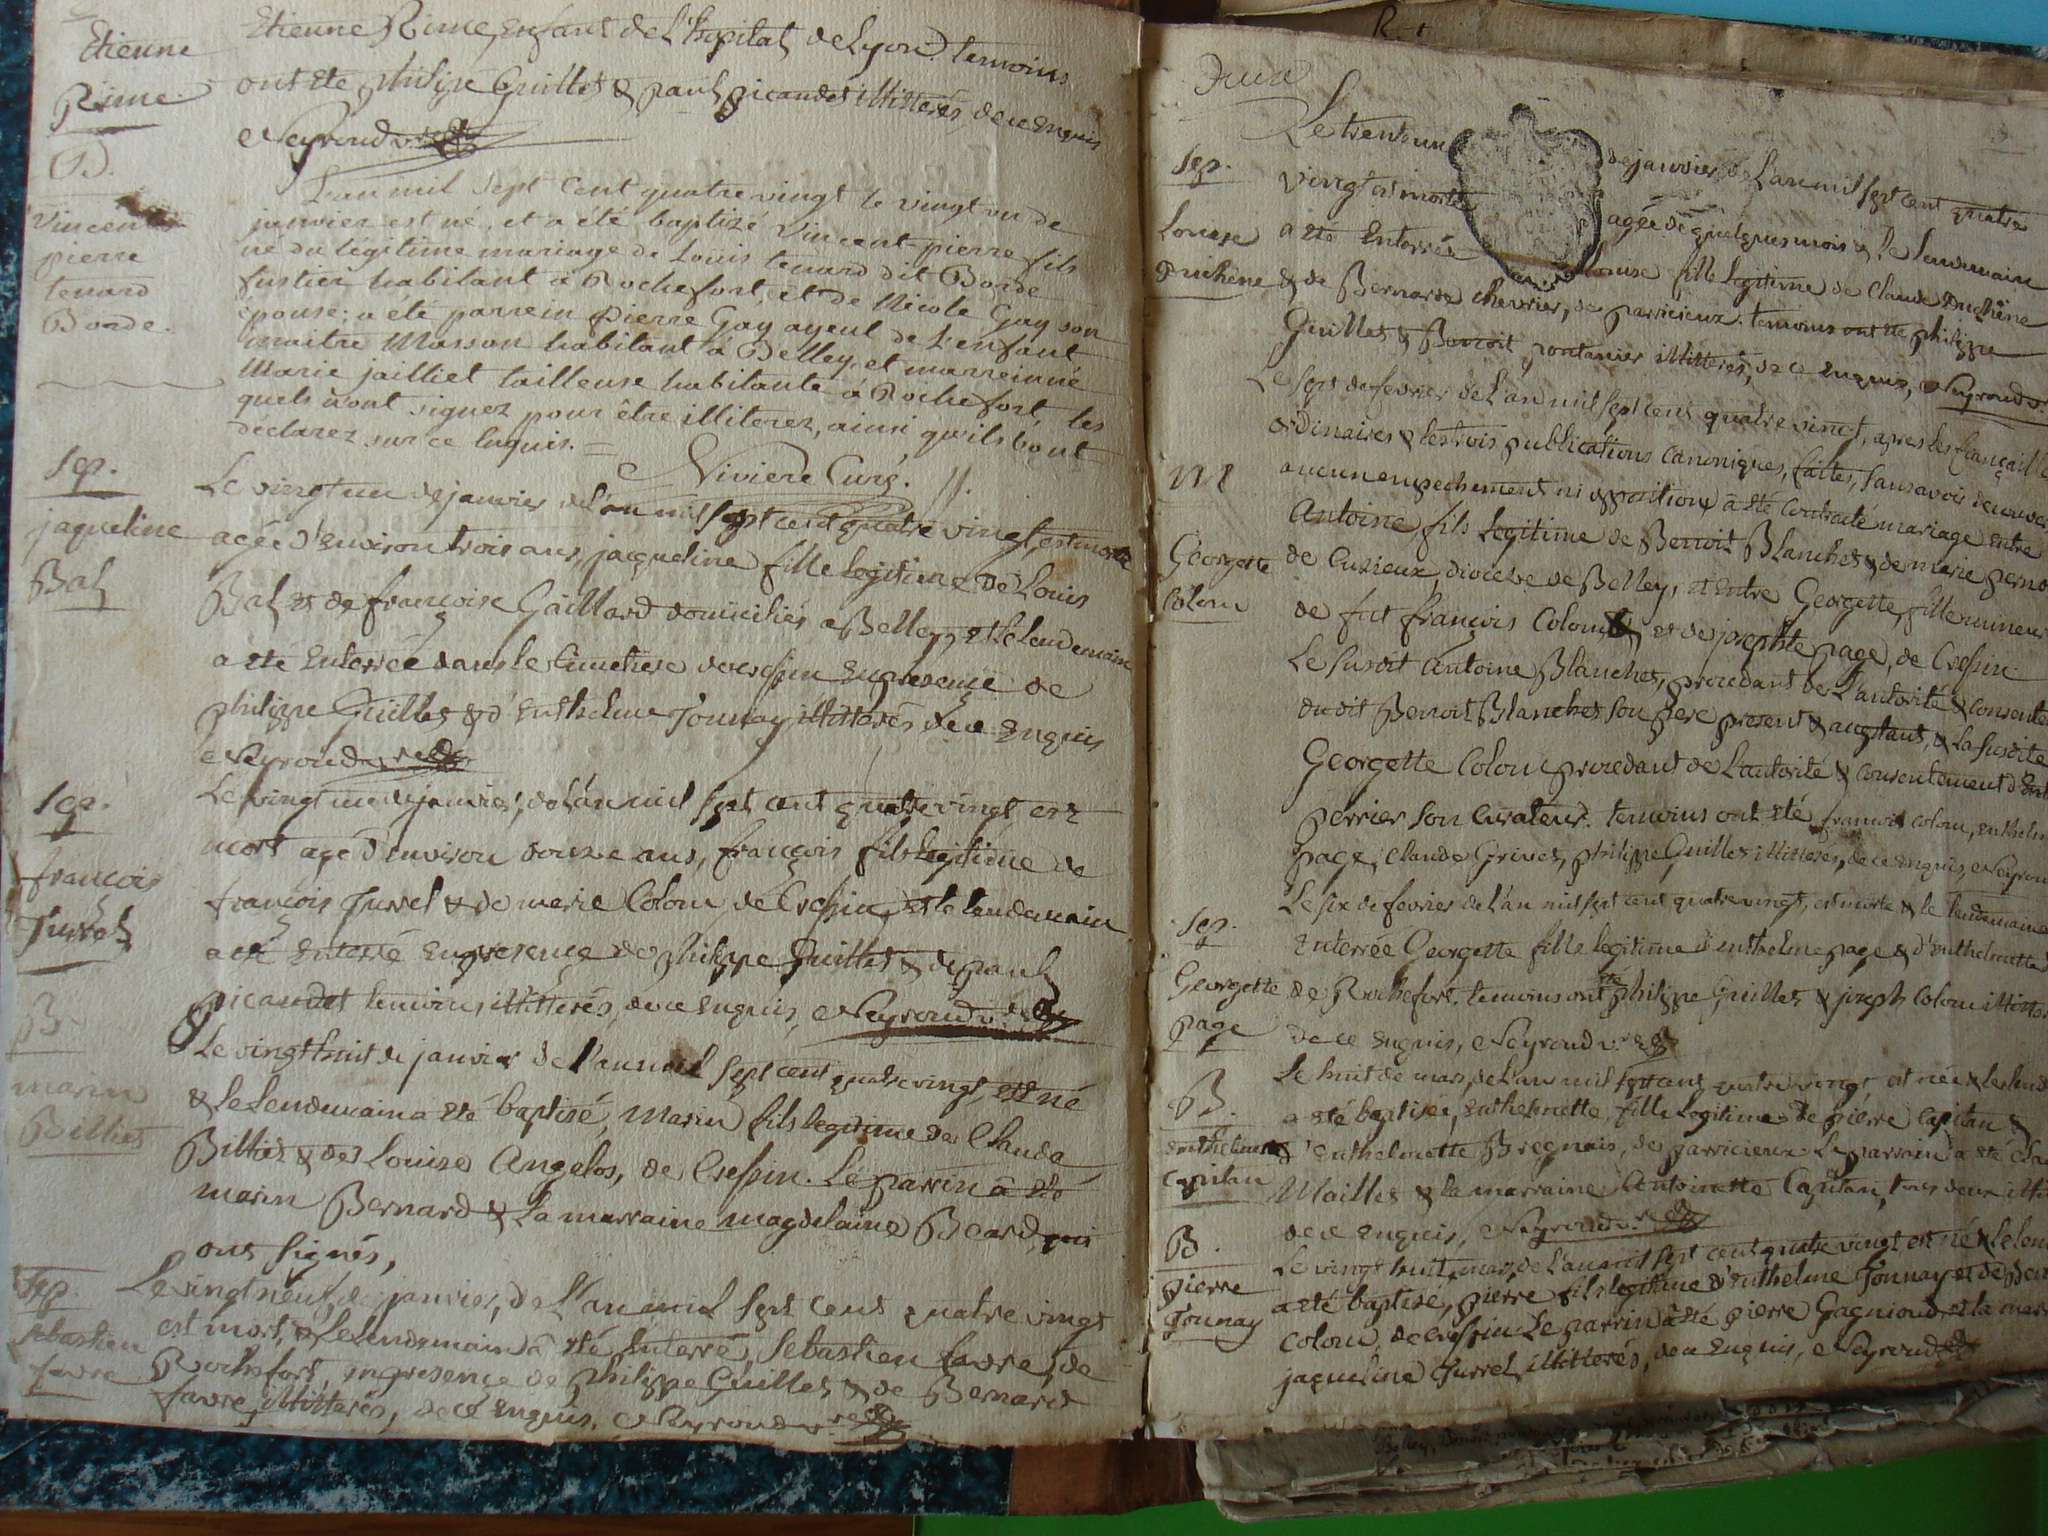 Etienne
Rime
Etienne Rime, enfant de L'hopital de Lyon. temoins
ont été philipe Guillet & paul picandet illitterés, de ce enquis
Neyroud v.re
B.
Vincent
pierre
tenard
Borde.
L'an mil sept cent quatre vingt le vingt un de
janvier est né, et a été baptizé Vincent-pierre fils
né du légitime mariage de Louis tenard dit Borde
fustier habitant à Rochefort, et de Nicole Gay son
épouse; a été parrein pierre Gay ayeul de L'enfant
maitre Masson habitant à Belley, et marreinne
Marie jailliet tailleuse habitante à Rochefort les
quels n'ont signez pour être illiterez, ainsi qu'ils l'ont
déclarez sur ce Enquis. =
Nivière Curé.
Sep.
jaqueline
Bal
Le vingt un de janvier de l'an mil sept cent quatre vingt, est morte
agée d'environ trois ans, jaqueline fille legitime de Louis
Bal & de francoise Gaillard domiciliés a Belley, et le lendemain
a été enterrée dans le cimetiere de cressin en presence de
philippe Guillet & d'enthelme Tonnay illitterés de ce enquis
Neyroud v.re
Sep.
françois
Jurrel
Le vingt un de janvier, de L'an mil sept cent quatre vingt est
mort agé d'environ douze ans, françois fils legitime de
françois Jurrel & de marie Colom de Cressin, et le lendemain
a été enterré en presence de philippe Guillet & de paul
picandet temoins illitterés, de ce enquis, Neyroud v.re
B.
marin
Billiet
Le vingt huit de janvier de l'an mil sept cent quatre vingt est né
& le lendemain a été baptisé, marin fils legitime de Claude
Billiet & de Louise Angelos, de Cressin. Le parrin a été
marin Bernard & la marraine magdelaine Beard, qui
ont signés,
Sep.
sebastien
favre
Le vingt neuf de janvier, de L'an mil sept cent quatre vingt
est mort, & le lendemain a été enterré, sebastien favre, de
Rochefort, en presence de philippe Guillet & de Bernard
favre, illitterés, de ce enquis. Neyroud v.re
Deux
Sep.
Louise
Duchêne
Le trente un de janvier de L'an mil sept cent quatre
vingt est morte agée de quelques mois & le lendemain
a été enterrée Louise fille legitime de Claude Duchêne
& de Bernarde chevrier, de parricieux. temoins ont été philippe
Guillet & Benoit pontanier illitterés, de ce enquis, Neyroud v.
M
Georgette
Colom
Le sept de fevrier de L'an mil sept cent quatre vingt, apres les françailles
ordinaires & les trois publications canoniques, faites, sans avoir decouvert
aucun empechement ni opposition, a été contracté mariage entre
Antoine, fils legitime de Benoit Blanchet & de marie perno
de Cuzieux, diocese de Belley, et entre Georgette, fille mineure
de fut françois Colom, et de josephte page, de Cressin.
Le susdit Antoine Blanchet, procedant de L'autorité & consente
dudit Benoit Blanchet son pere present & augtant, & la susdite
Georgette Colom procedant de L'autorité & consentement d'Ent
perrier son curateur. temoins ont été françois colom, enthelm
page, Claude Grivet, philippe Guillet illitterés, de ce enquis, Neyrou
Sep.
Georgette
page
Le six de fevrier de L'an mil sept cent quatre vingt, est morte & le lendemain a
enterrée Georgette fille legitime d'enthelme page & d'enthelmette
de Rochefort. temoins ont été philippe Guillet & joseph Colom illitter
de ce enquis, Neyroud v.re
B.
enthelmette
Capitan
Le huit de mars, de L'an mil sept cent quatre vingt est née & le lend
a été baptisée, enthelmette, fille legitime de pierre Capitan &
d'enthelmette Bregnais, de parricieux. Le parrain a été Clau
Maillet & la marraine Antoinette Capitan, tous deux illi
de ce enquis, Neyroud v.re
B.
pierre
Tonnay
Le vingt huit mars, de L'an mil sept cent quatre vingt est né & le len
a été baptisé, pierre fils legitime d'enthelme Tonnay et de
Colom, de cressin. Le parrin a été pierre Gagnioud et la mar
jaqueline Jurrel illitterés, de ce enquis, Neyroud